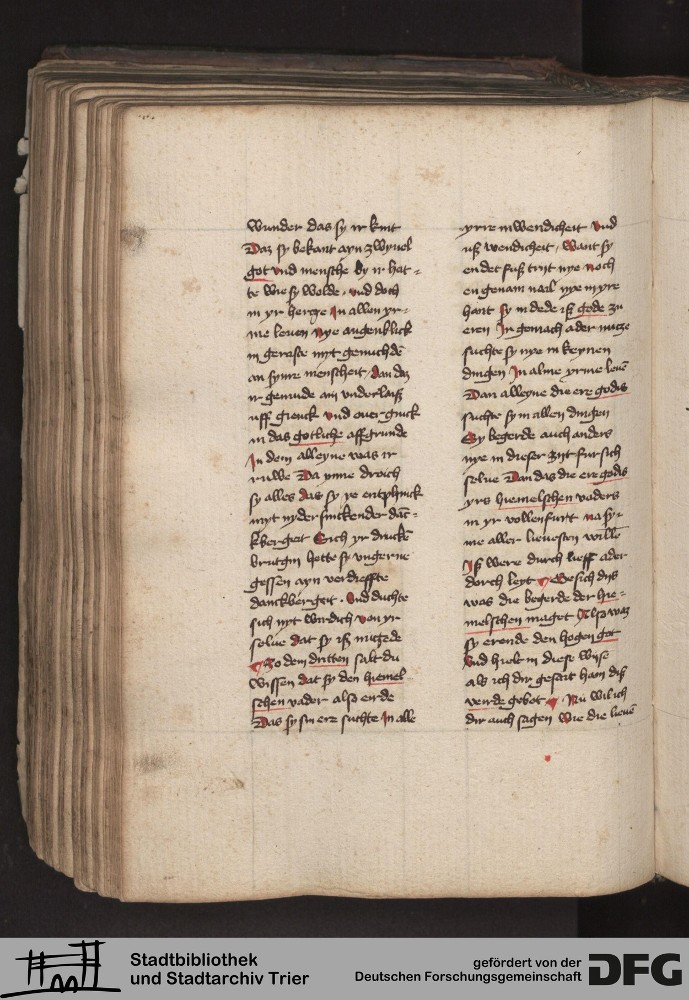 wunder das sy ir kint
Daz sy bekant ayn zwyuel
got vnd mensche by ir hat-
te wie sy wolde. vnd doch
in yr hertze In allen yr-
me leuen nye augenblick
in geraste myt genuchde
an syme menscheit. dan daz
ir gemude ain vnderlaiß
uff gienck vnd ouerginck
in das gotliche affgrunde
In dem alleyne was ir
ruwe Da ynne
sy alles das sy ye entphinck
myt nyder sinckender danc-
kbergeit Sich yr drucken
brutgin hette sy vngerne
gessen ayn verdieffte
danckbergeit. Vnd duchte
sich nyt wirdich von yr
selue dat sy iß
Zo dem dritten salt du
wissen dat sy den hiemel
schen vader also eirde
Das sy sin ere suchte In alle
yrre inwendicheit vnd
uß wendicheit. want sy
en det fuß trit nye noch
en genam nye in yre
hant sy in dede iß gode zu
eren Ir gemach ader nutze
suchte sy nye in keynen
dingen In alme yrme leuē
Dan alleyne die ere godis
suchte sy in allen dingen
Sy begerde auch anders
nye in dieser zyt fur sich
selue Dan das die ere godis
yrs hiemelschen vaders
in yr vollenfurt na sy-
me aller lieuesten willē
Iß were durch lieff ader
dorch leyt Besich dyß
was die begerde der hie-
melschen magot Also waz
sy erende den hogen got
Vnd hielt in diese wyse
als ich dir gesait hain diß
virde gebot. Nu wil ich
dir auch sagen wie die lieuē
Stadtbibliothek
und Stadtarchiv Trier
gefördert von der
Deutschen Forschungsgemeinschaft
DFG